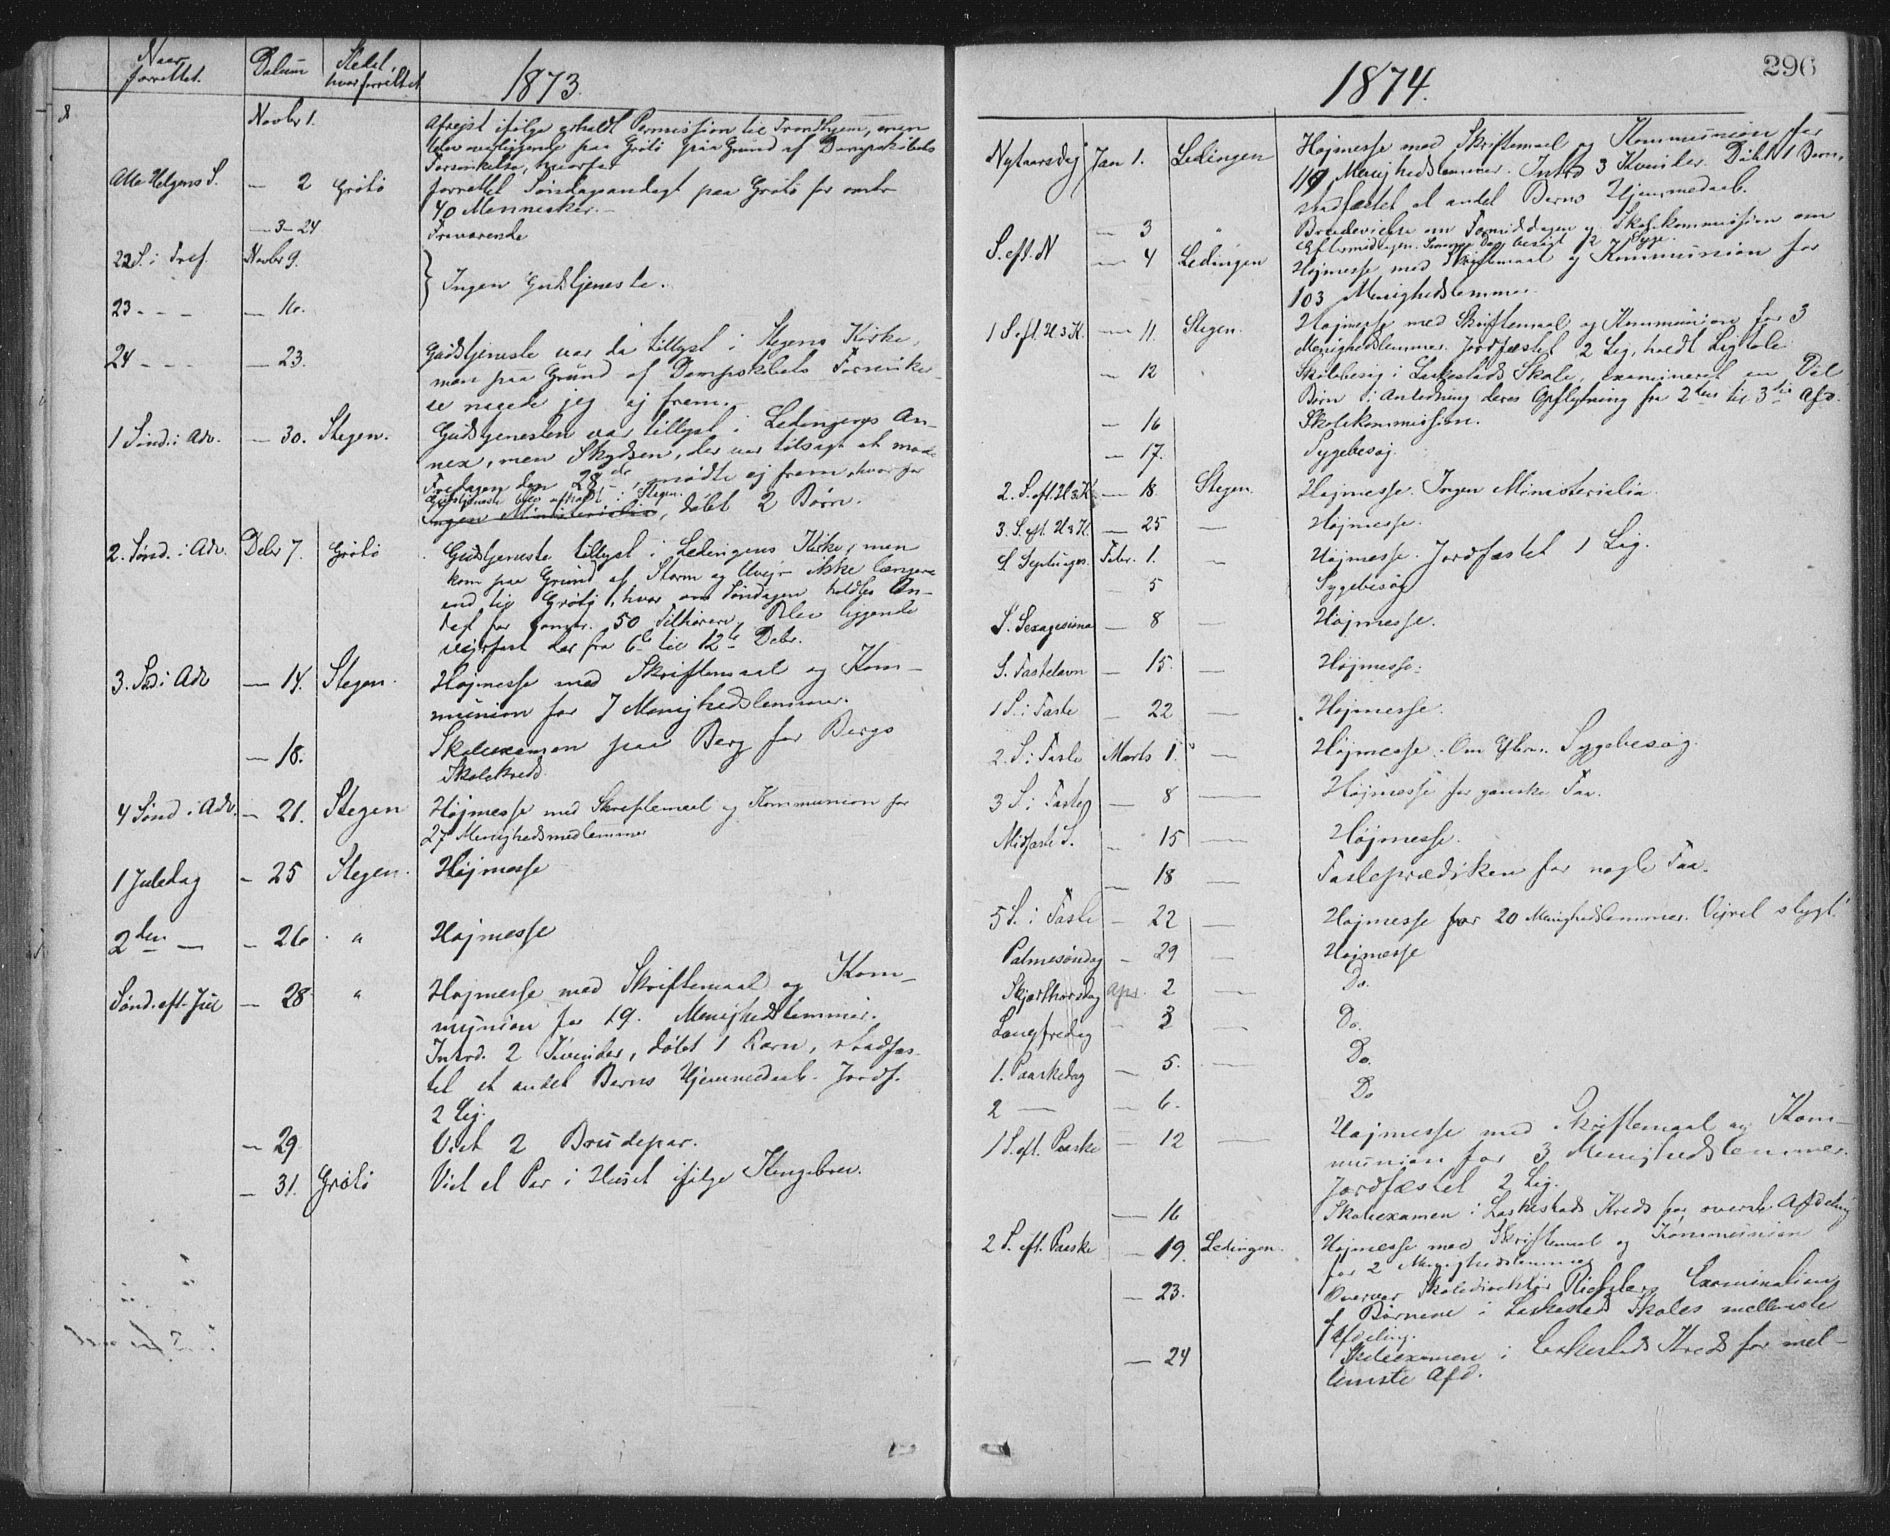 Naar
forrettet.
Datum
Stedet,
hvor forrettet
1873.
Novbr 1.
Afrejst ifølge erholdt Permission til Trondhjem, men
blev overliggende paa Grötö paa Grund af Dampskibets
Forsinkelse, hvorfor
Alle Helgens S. — 2 Grötö forrettet Søndagsandagt paa Grötö for omtr
40 Mennesker.—
— 3–24 Fraværende
22 S. i Tref. Novbr 9.
Ingen Gudstjeneste.
23 - - - — 16.
24 - - - — 23. Gudstjeneste var da tillyst i Stegens Kirke,
men paa Grund af Dampskibets Forsinkel-
se naaede jeg ej frem.—
1 Sønd. i Adv. — 30. Stegen. Gudstjenesten var tillyst i Ledingens An-
nex, men Skydsen, der var tilsagt at møde
Fredagen den 28de, mødte ej frem, hvorfor
Gudstjeneste blev afholdt i Stegen.
Ingen Ministerialia, døbt 2 Børn.
2. Sønd. i Adv. Debr 7. Grötö Gudstjeneste tillyst i Ledingens Kirke, men
kom paa Grund af Storm og Uvejr ikke længere
end til Grötö, hvor om Søndagen holdtes An-
dagt for omtr. 50 Tilhørere. Blev liggende
vejrfast der fra 6te til 12te Debr.
3. Sø. i Adv — 14. Stegen. Højmesse med Skriftemaal og Kom-
munion for 7 Menighedslemmer.
— 18. Skoleexamen paa Berg for Bergs
Skolekreds.
4 Sønd. i Adv. — 21. Stegen Højmesse med Skriftemaal og Kommunion for
27 Menighedsmedlemmer
1 Juledag — 25 Stegen. Højmesse
2den — — 26 " Højmesse
Sønd. eft. Jul — 28 " Højmesse med Skriftemaal og Kom-
munion for 19. Menighedslemmer.
Introd. 2 Kvinder, døbt 1 Barn, stadfæs-
tet et andet Barns Hjemmedaab. Jordf.
2 Lig.
— 29 Viet 2 Brudepar.
— 31. Grötö Viet et Par i Huset ifølge Kongebrev.
296
1874.
Nytaarsdag Jan 1. Ledingen Højmesse med Skriftemaal og Kommunion for
119 Menighedslemmer. Introd 3 Kvinder. Døbt 1 Barn,
stadfæstet et andet Barns Hjemmedaab.
— 3 " Brudevielse om Formiddagen og Skolekommission om
Eftermiddagen. Samme Dag besøgt 2 Syge.
S. eft. N — 4 Ledingen Højmesse med Skriftemaal og Kommunion for
103 Menighedslemmer
1 S. eft. H 3 K. — 11. Stegen. Højmesse med Skriftemaal og Kommunion for 3
Menighedslemmer. Jordfæstet 2 Lig, holdt Ligtale.
— 12 Skolebesøg i Laskestads Skole, examineret en Del
Børn i Anledning deres Opflytning fra 2den til 3die Afd.
— 16 Skolekommission.
— 17. Sygebesøg.
2. S. eft. H 3 K — 18. Stegen. Højmesse. Ingen Ministerialia.
3. S. eft. H 3 K. — 25 — Højmesse.
S. Septuages. Febr. 1. — Højmesse. Jordfæstet 1 Lig.
— 5 Sygebesøg
S. Sexagesima — 8 — Højmesse.
S. Fastelavn — 15. — Højmesse.
1 S. i Faste — 22 — Højmesse.
2. S. i Faste Marts 1. — Højmesse. Om Efterm. Sygebesøg.
3 S. i Faste — 8 — Højmesse for ganske Faa.
Midfaste S. — 15 — Højmesse.
— 18 — Fasteprædiken for nogle Faa.
5 S. i Faste — 22 — Højmesse for 20 Menighedslemmer. Vejret stygt.
Palmesøndag — 29 — Højmesse
Skjærthorsdag Apr. 2 — Do.
Langfredag — 3 — Do.
1. Paaskedag — 5. — Do.
2 — — 6. Do
1 S. eft. Paaske — 12 — Højmesse med Skriftemaal og Kom-
munion for 3 Menighedslemmer.
Jordfæstet 2 Lig.
— 16 Skoleexamen i Laskestads Kreds for øverste Afdeling
2 S. eft. Paaske — 19. Ledingen. Højmesse med Skriftemaal og Kommunion
for 2 Menighedslemmer
— 23. Overvar Skoledirektør Richters Examination
af Børnene i Laskestads Skoles mellemste
Afdeling.
— 24 Skoleexamen i Laskestads Kreds for mel-
lemste Afd.